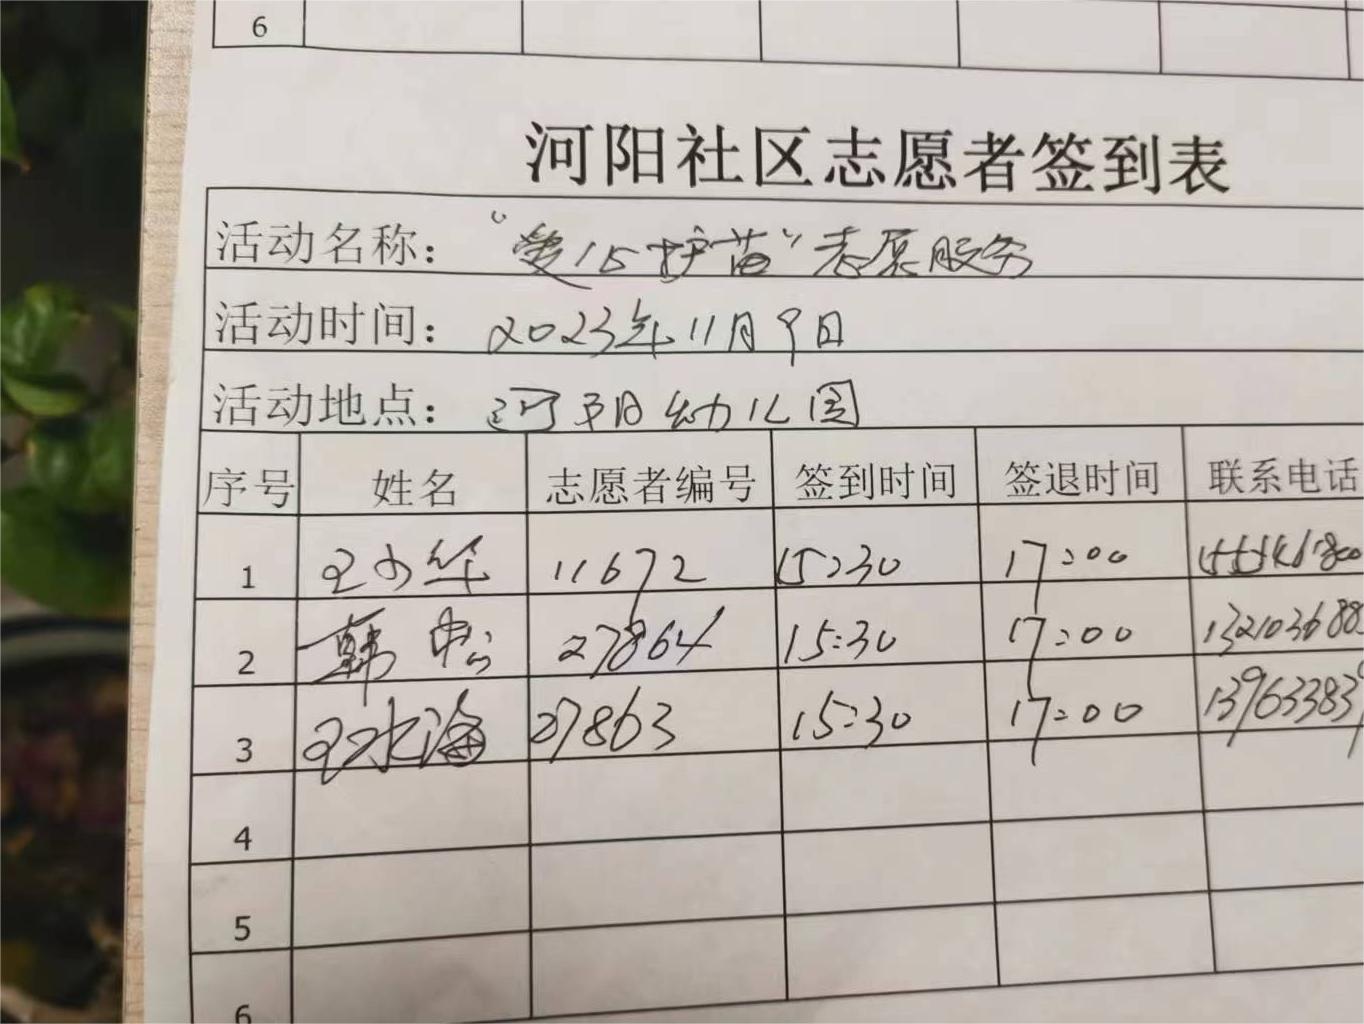 6
河阳社区志愿者签到表
活动名称："爱心护苗"志愿服务
活动时间：2023年11月9日
活动地点：河阳幼儿园
序号 姓名 志愿者编号 签到时间 签退时间 联系电话
1 王少华 11672 15:30 17:00
2 韩 27864 15:30 17:00 132103688
3 王冰海 27863 15:30 17:00 139633839
4
5
6